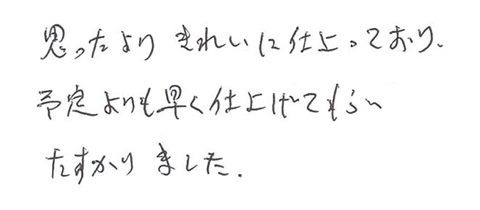 思ったより きれいに仕上っており、
予定よりも早く仕上げてもらい
たすかりました.